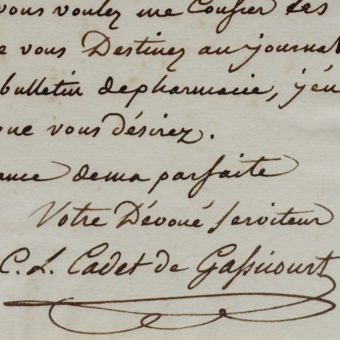 vous voulez me Confier Les
e vous Destinez au journal
bulletin depharmacie, j'en
que vous désirez.
ance dema parfaite
Votre Dévoué Serviteur
C. L. Cadet de Gassicourt